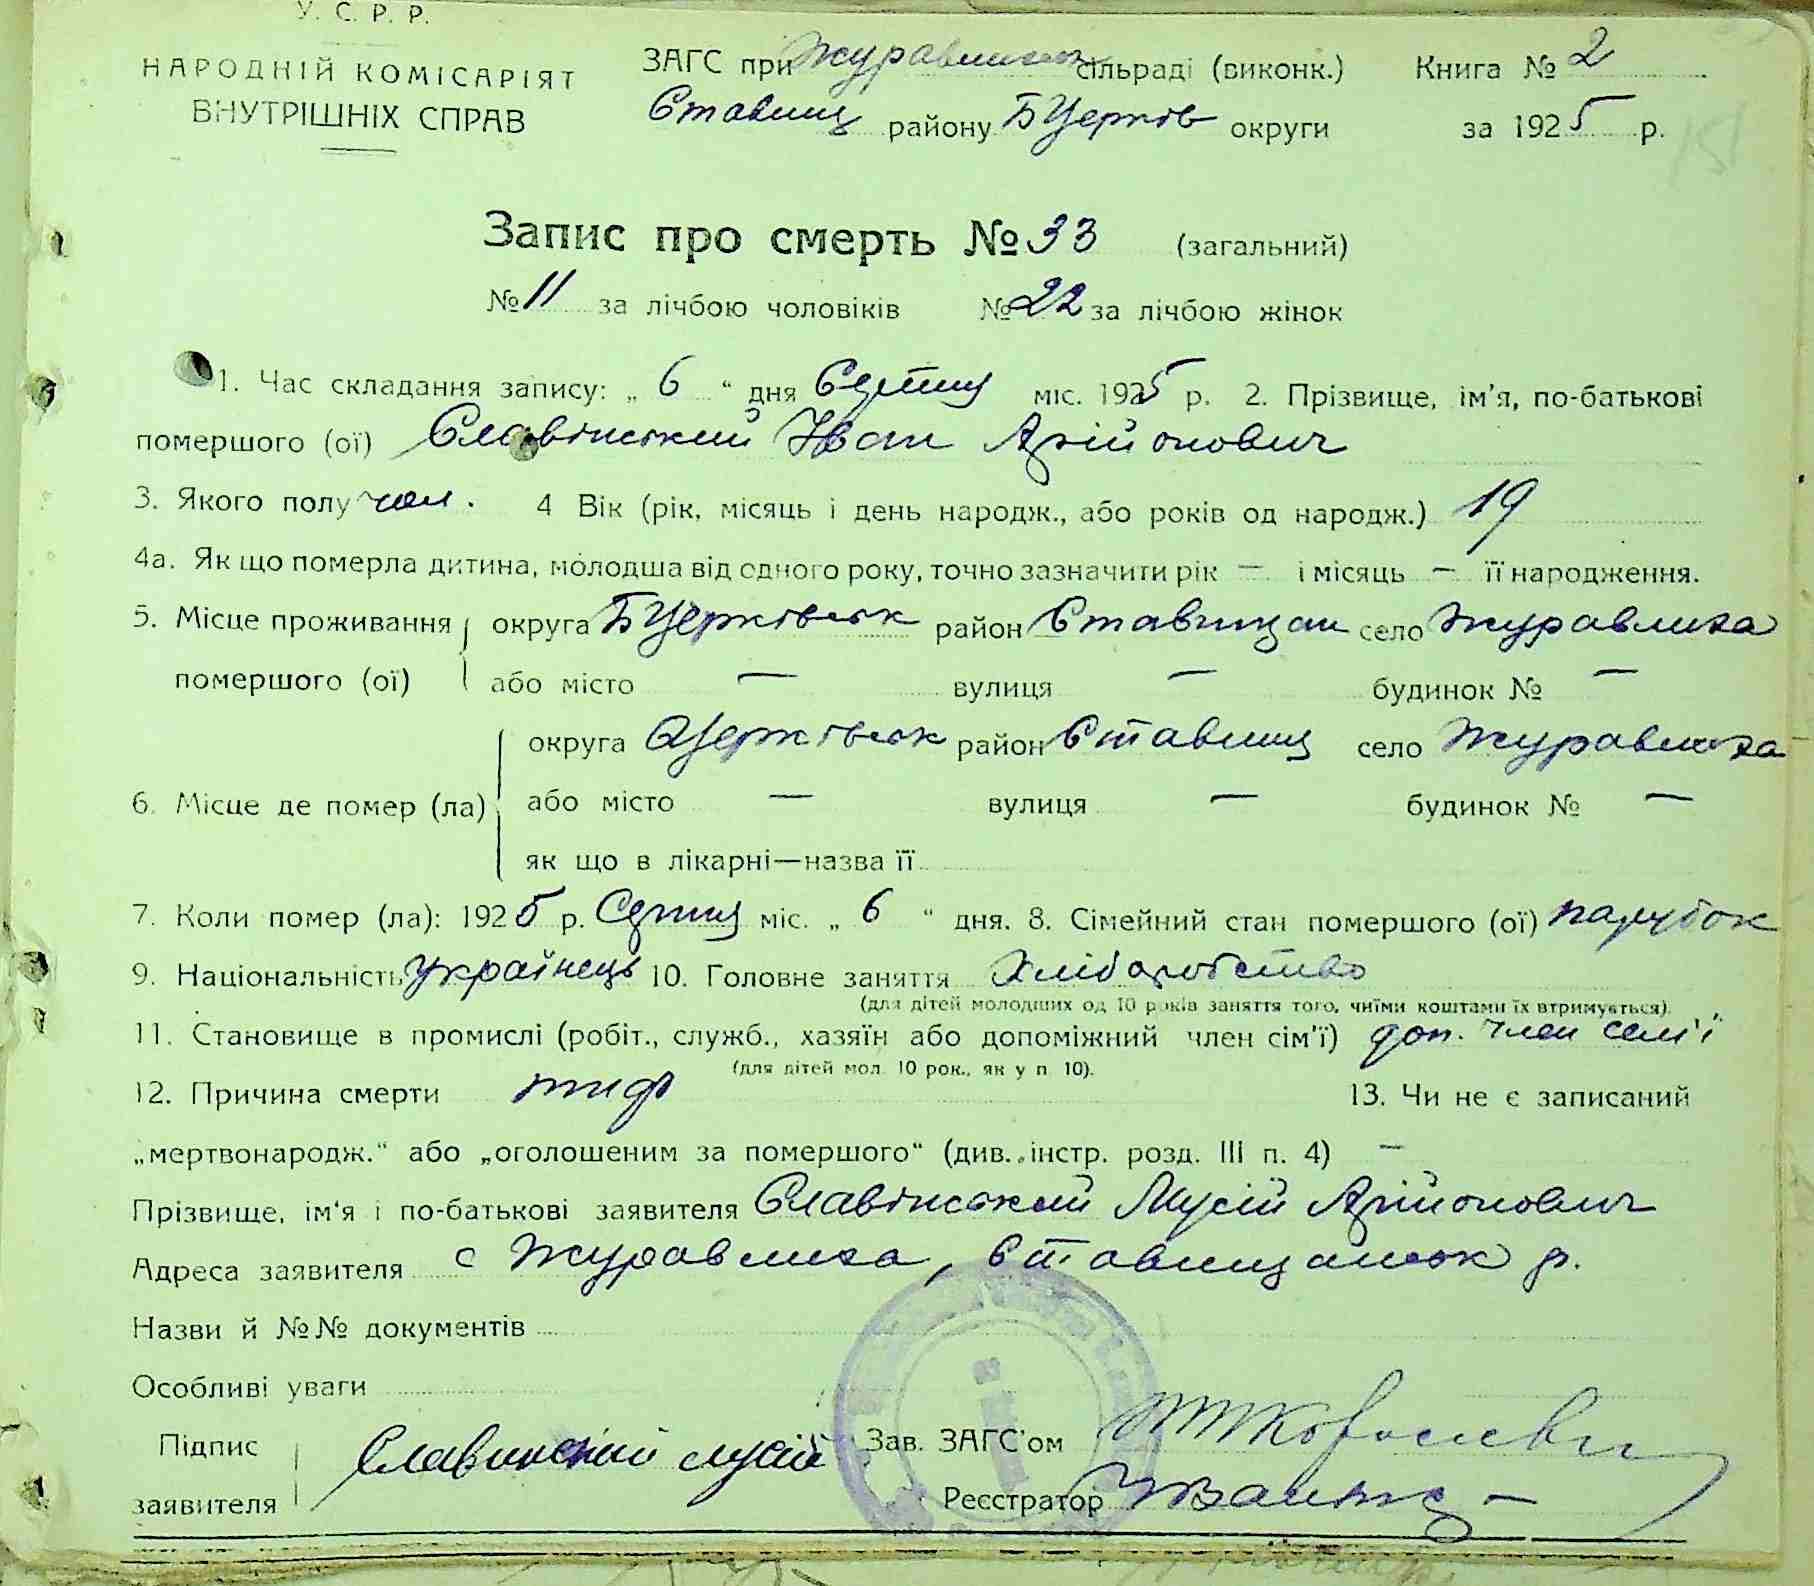 У. С. Р. Р.
НАРОДНІЙ КОМІСАРІЯТ
ВНУТРІШНІХ СПРАВ
ЗАГС при сільраді (виконк.) Книга № 2
Ставищ району БЦерків округи за 1925 р.
Запис про смерть № 33 (загальний)
№ 11 за лічбою чоловіків № 22 за лічбою жінок
1. Час складання запису: „ 6 “ дня міс. 1925 р. 2. Прізвище, ім'я, по-батькові
помершого (ої) Славінський Іван
3. Якого полу чол. 4 Вік (рік, місяць і день народж., або років од народж.) 19
4а. Як що померла дитина, молодша від одного року, точно зазначити рік — і місяць — її народження.
5. Місце проживання округа БЦерківськ район Ставищан село Журавлиха
помершого (ої) або місто — вулиця — будинок № —
округа район Ставищ село Журавлиха
6. Місце де помер (ла) або місто — вулиця — будинок № —
як що в лікарні—назва її
7. Коли помер (ла): 1925 р. міс. „ 6 “ дня. 8. Сімейний стан помершого (ої) парубок
9. Національність українець 10. Головне заняття Хліборобство
(для дітей молодших од 10 років заняття того, чиїми коштами їх втримується).
11. Становище в промислі (робіт., служб., хазяїн або допоміжний член сім'ї) доп. член семʼї
(для дітей мол. 10 рок., як у п. 10).
12. Причина смерти тиф 13. Чи не є записаний
„мертвонародж.“ або „оголошеним за помершого“ (див. інстр. розд. III п. 4) —
Прізвище, ім'я і по-батькові заявителя Славінський Мусій
Адреса заявителя с Журавлиха, Ставищанськ р.
Назви й №№ документів
Особливі уваги
Підпис Славинский Мусій Зав. ЗАГС'ом
заявителя Реєстратор